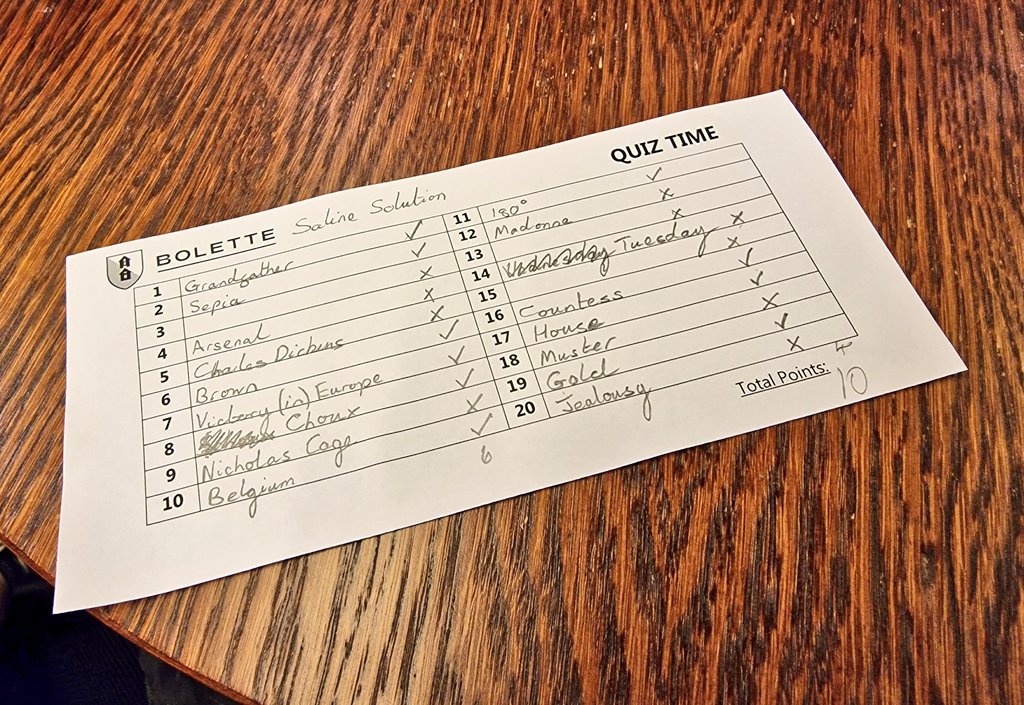 BOLETTE Saline Solution
QUIZ TIME
1 Grandgather ✓
2 Sepia ✓
3 x
4 Arsenal x
5 Charles Dickens x
6 Brown ✓
7 Victory (in) Europe ✓
8 Choux ✓
9 Nicholas Cage x
10 Belgium ✓
6
11 180° ✓
12 Madonna x
13 x
14 Tuesday x
15 x
16 Countess ✓
17 House ✓
18 Muster x
19 Gold ✓
20 Jealousy x
4
Total Points: 10